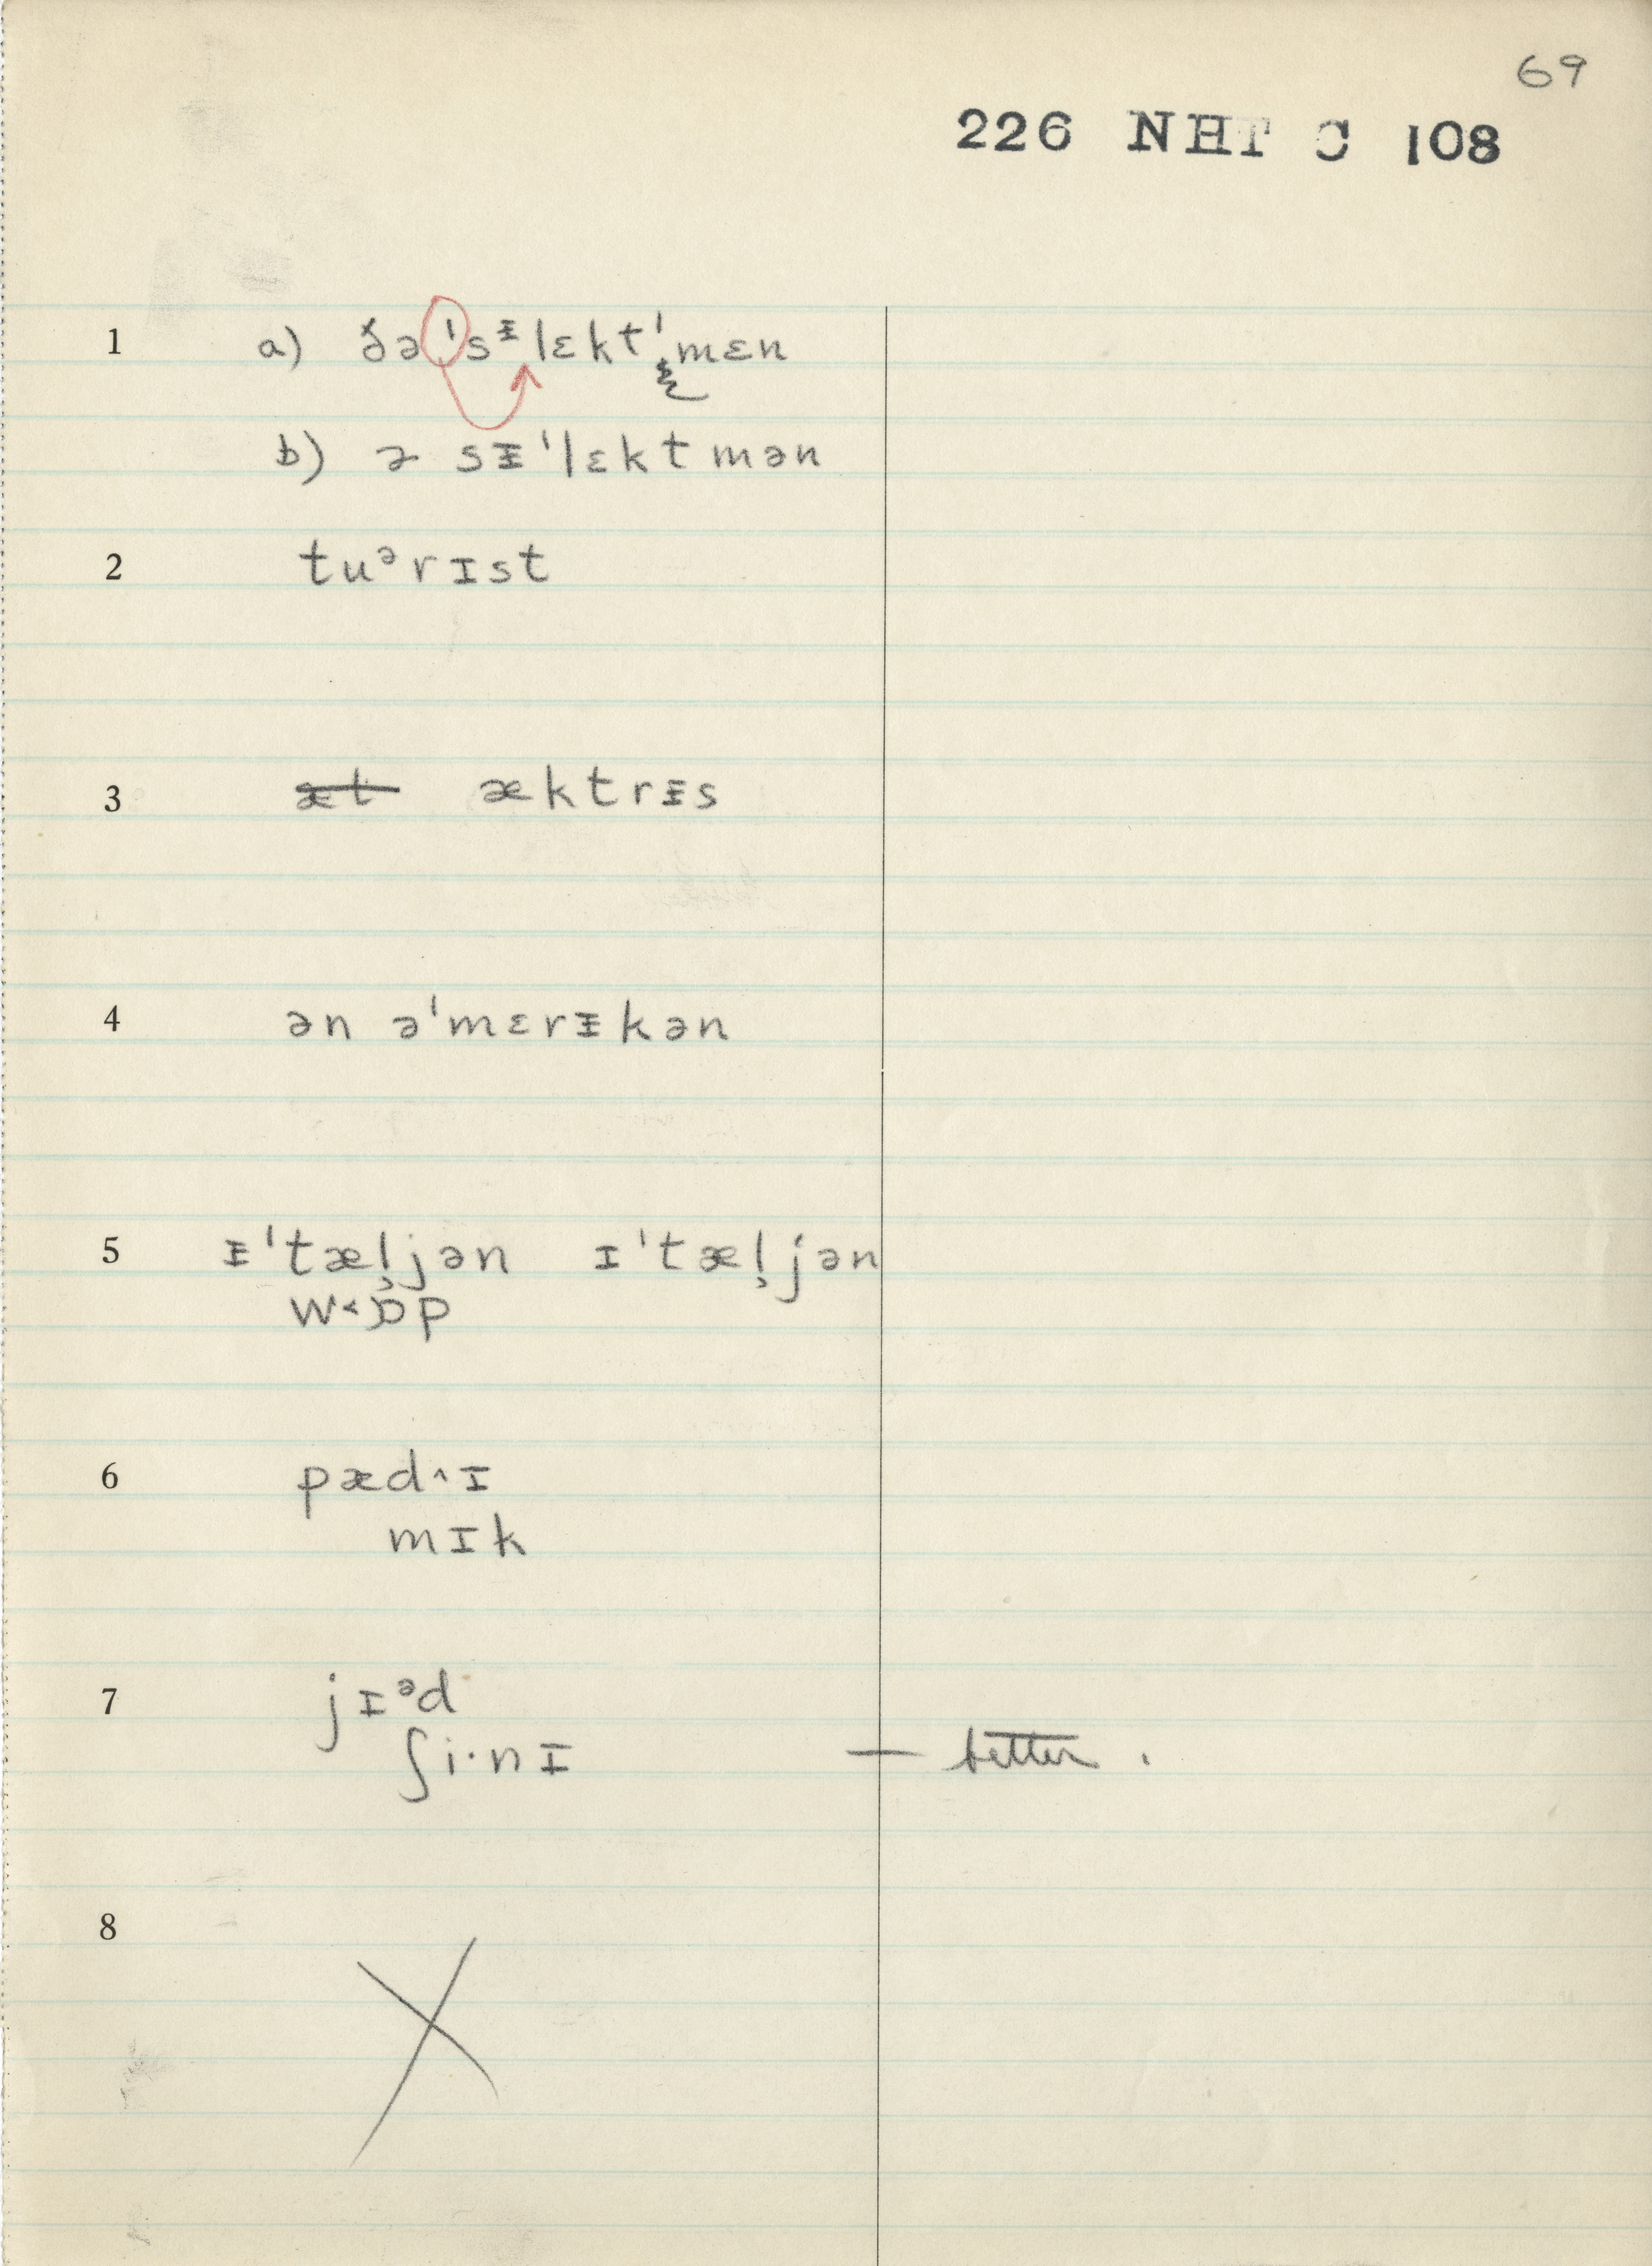 69
226 NHT C 108
1 a) ðə ˈsᵻlɛktˈmɛn
b) ə sᵻˈlɛktmən
2 tuᵊrɪst
3 æt æktrᵻs
4 ən əˈmɛrᵻkən
5 ᵻˈtæl̡jən ɪˈtæl̡jən
w˂ɒp
6 pæd˄ɪ
mɪk
7 jɪᵊd
ʃi·nɪ — better .
8